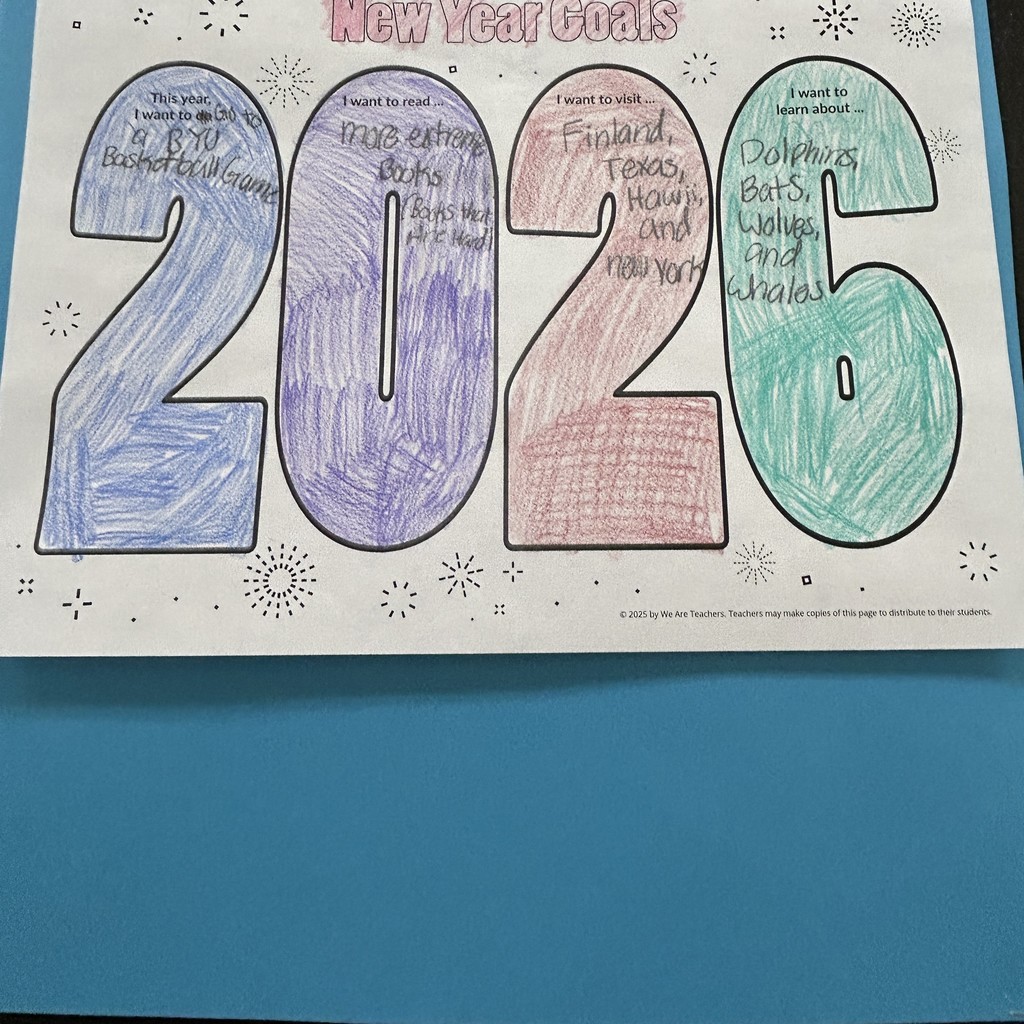 New Year Goals
This year,
I want to do Go to
a BYU
Basketball Game
I want to read ...
more extreme
Books
(Books that
Are Hard)
I want to visit ...
Finland,
Texas,
Hawii,
and
new York
I want to
learn about ...
Dolphins,
Bats,
Wolves,
and
whales
© 2025 by We Are Teachers. Teachers may make copies of this page to distribute to their students.